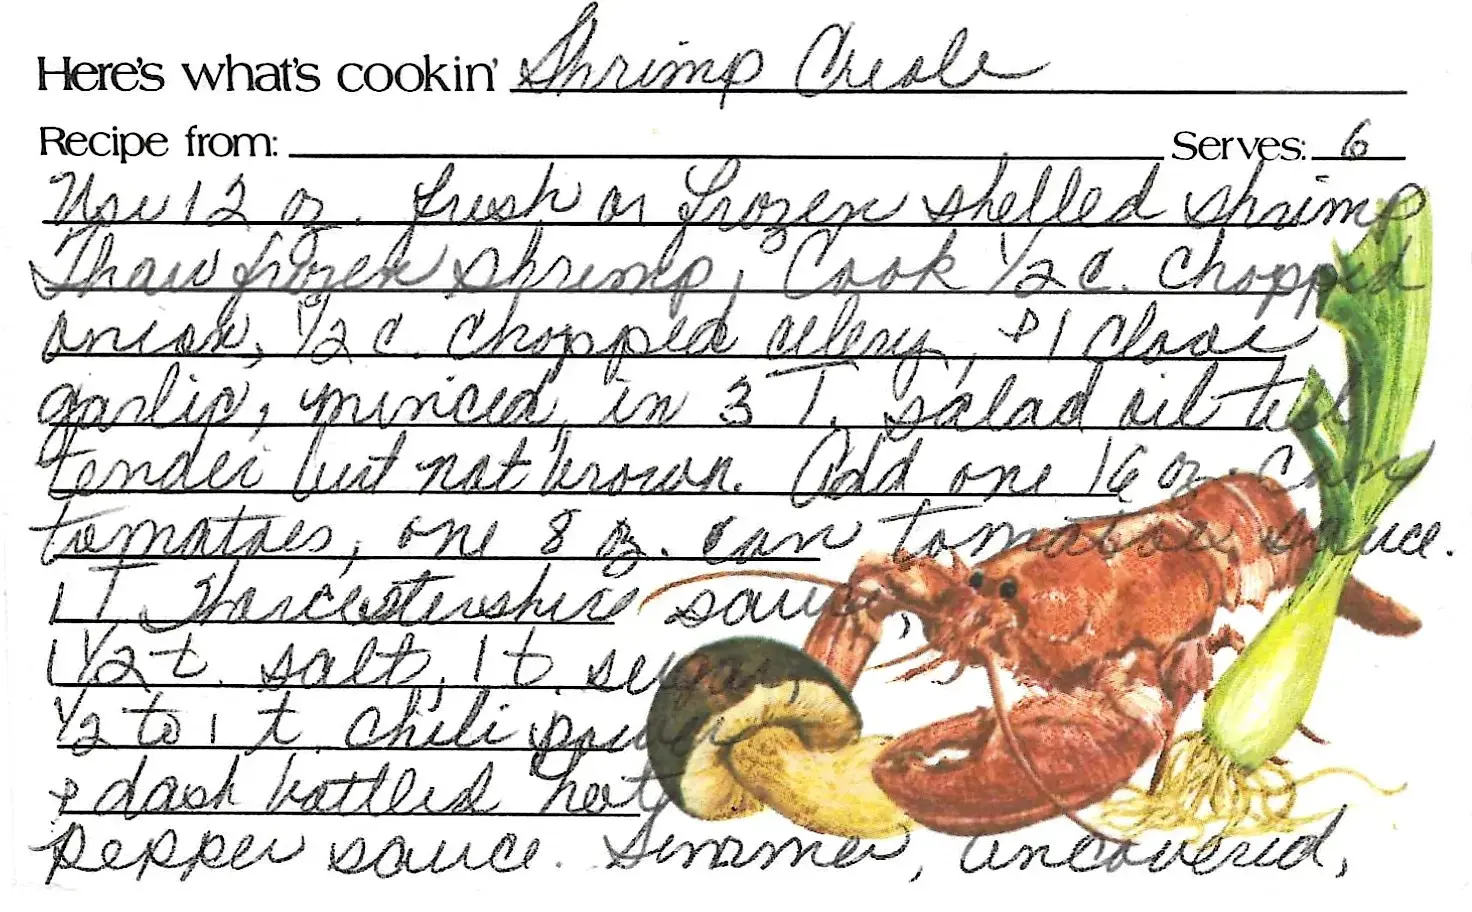 Here's what's cookin' Shrimp Creole
Recipe from: Serves: 6
Use 12 oz. fresh or frozen shelled shrimp
Thaw frozen shrimp; Cook 1/2 c. chopped
onion, 1/2 c. chopped celery, & 1 clove
garlic, minced, in 3 T. salad oil till
tender but not brown. Add one 16 oz. can
tomatoes, one 8 oz. can tomatoe sauce.
1 T. Worcestershire sauce,
1 1/2 t. salt, 1 t. sugar,
1/2 to 1 t. chili powder
& dash bottled hot
pepper sauce. Simmer, uncovered,